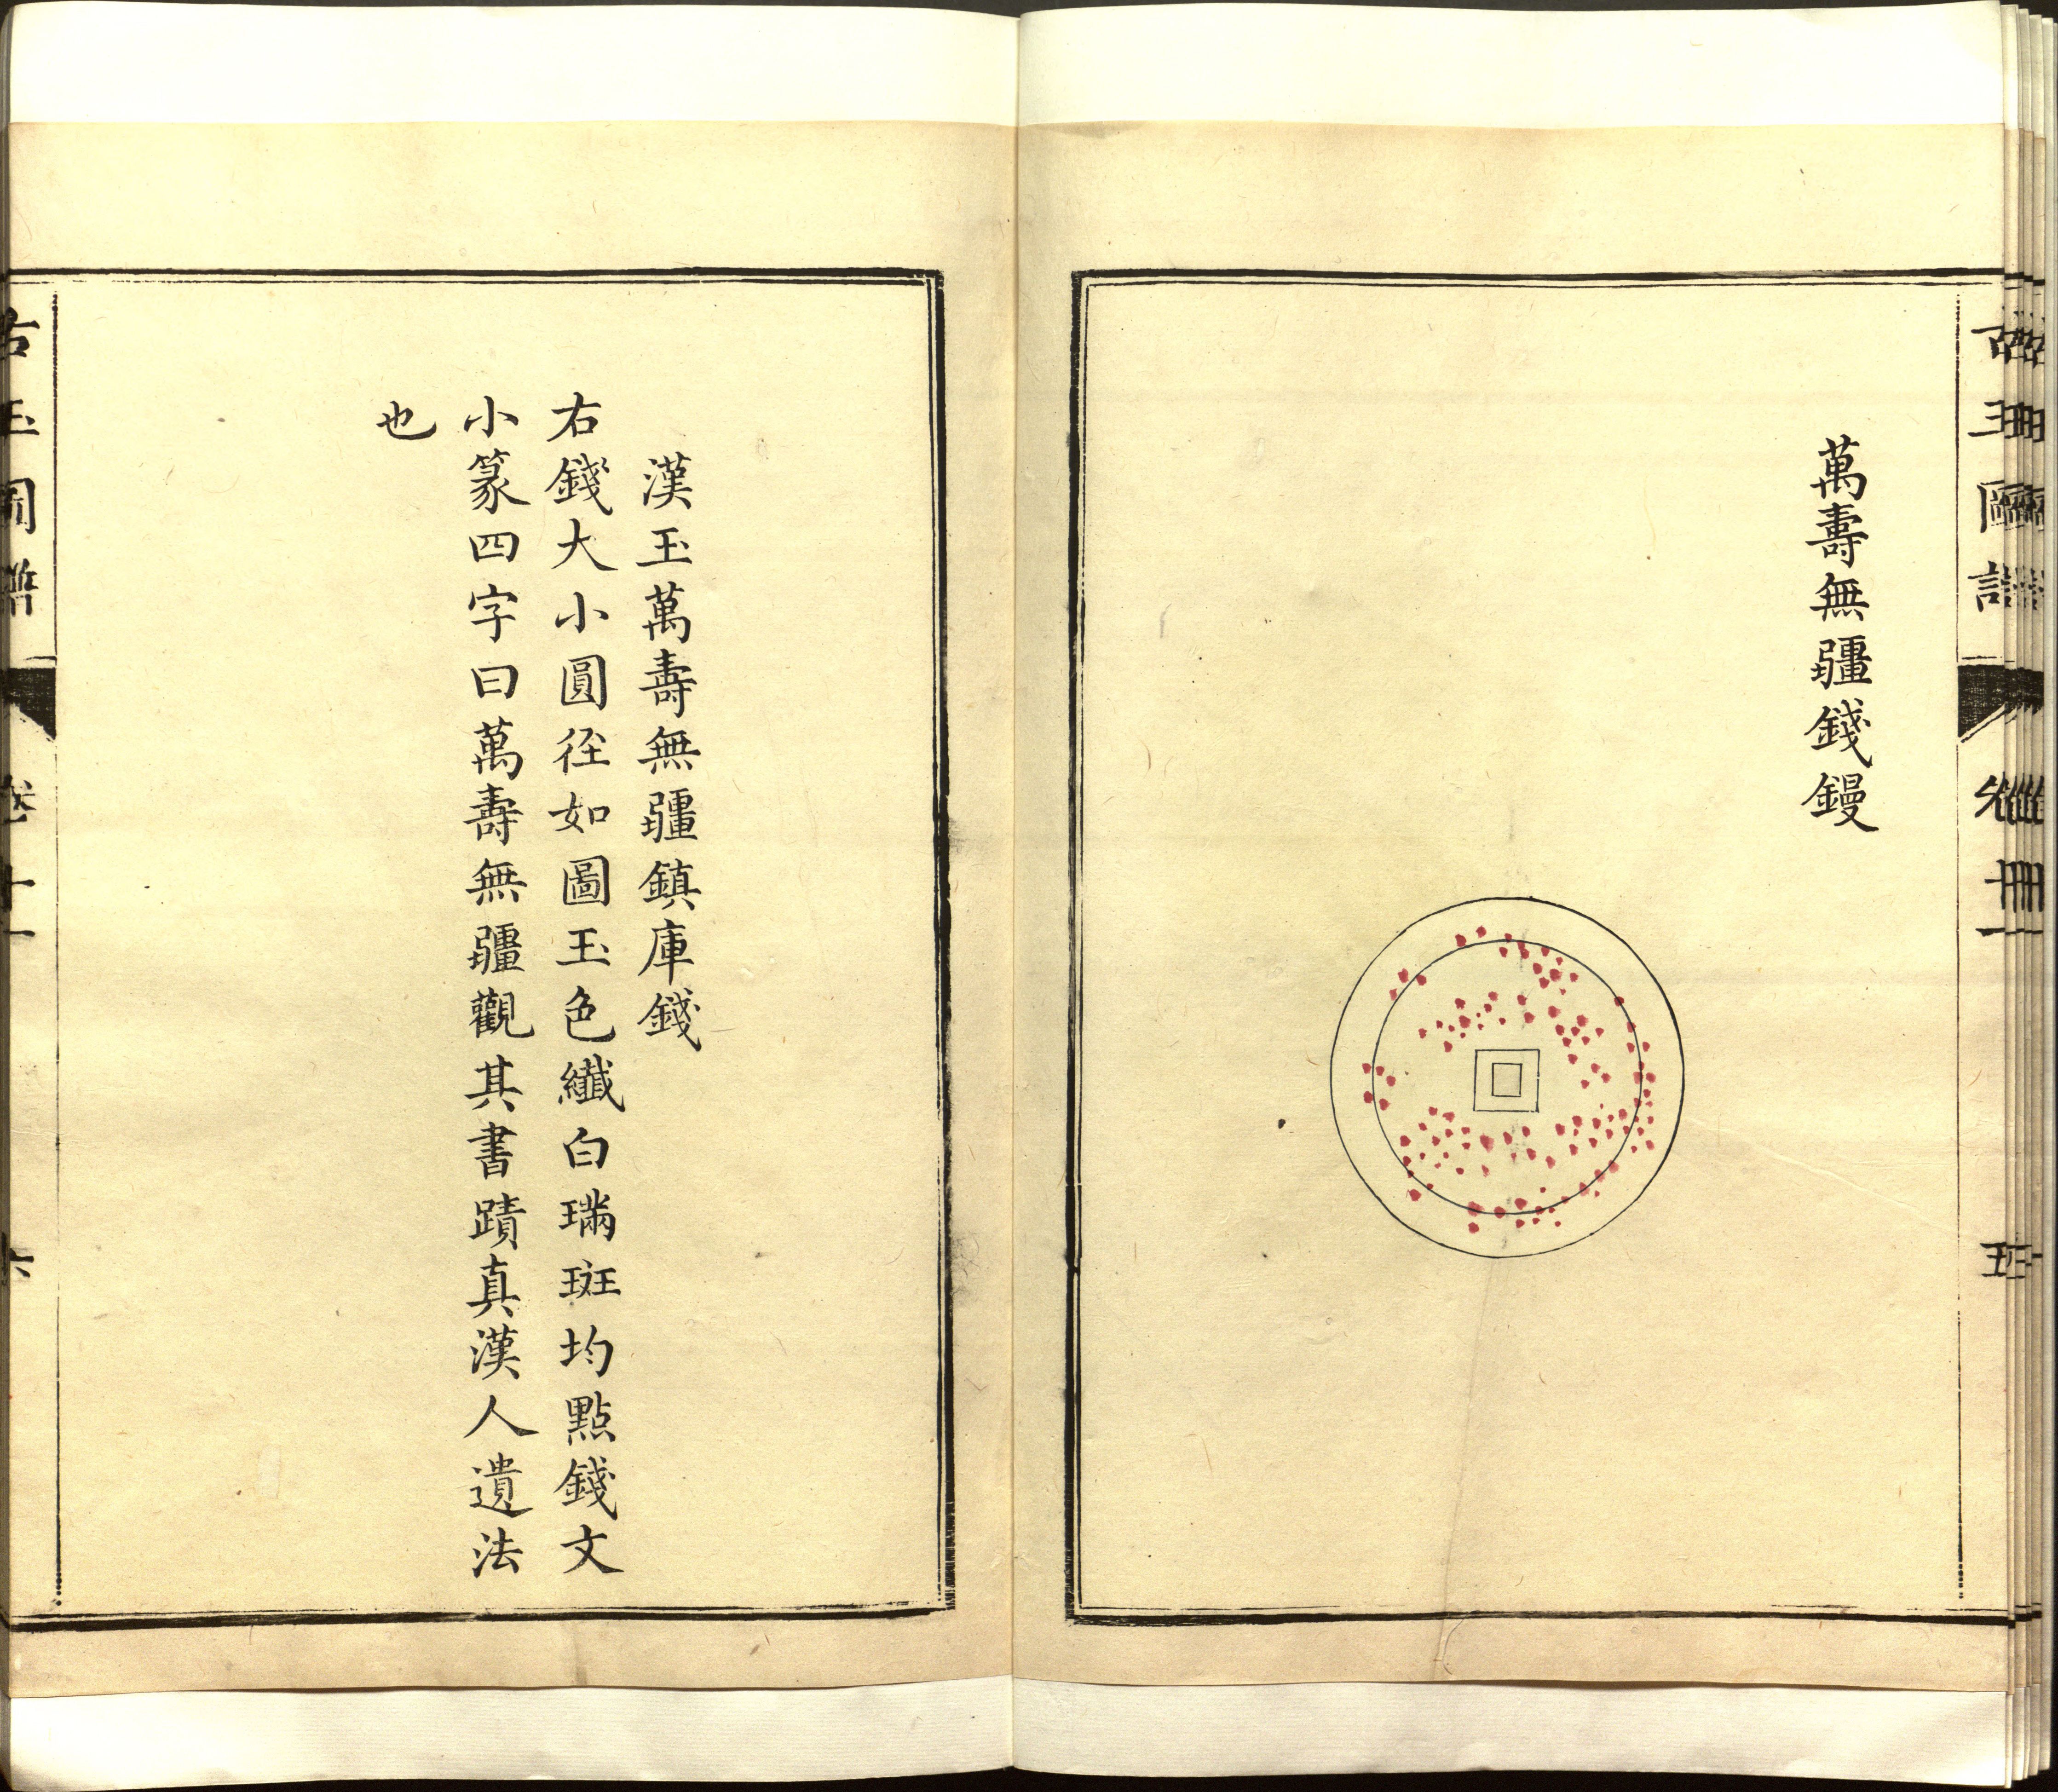 萬壽無疆錢鏝
漢玉萬壽無疆鎮庫錢
右錢大小圓徑如圖玉色纖白璊斑均點錢文
小篆四字曰萬壽無疆觀其書蹟真漢人遺法
也
古玉圖譜 卷十一 六